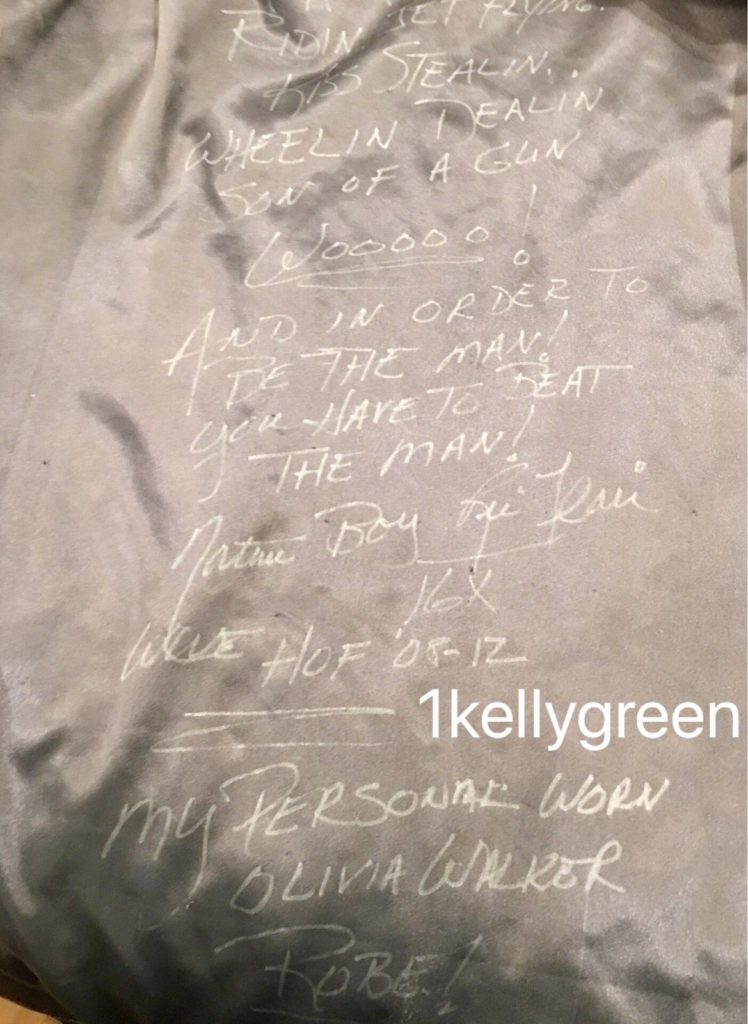 JET FLYING.
RIDIN
KISS STEALIN..
WHEELIN DEALIN
SON OF A GUN
WOOOOO!
AND IN ORDER TO
BE THE MAN!
YOU HAVE TO BEAT
THE MAN!
Nature Boy Ric Flair
16X
WWE HOF '08-12
1kellygreen
MY PERSONAL WORN
OLIVIA WALKER
ROBE!